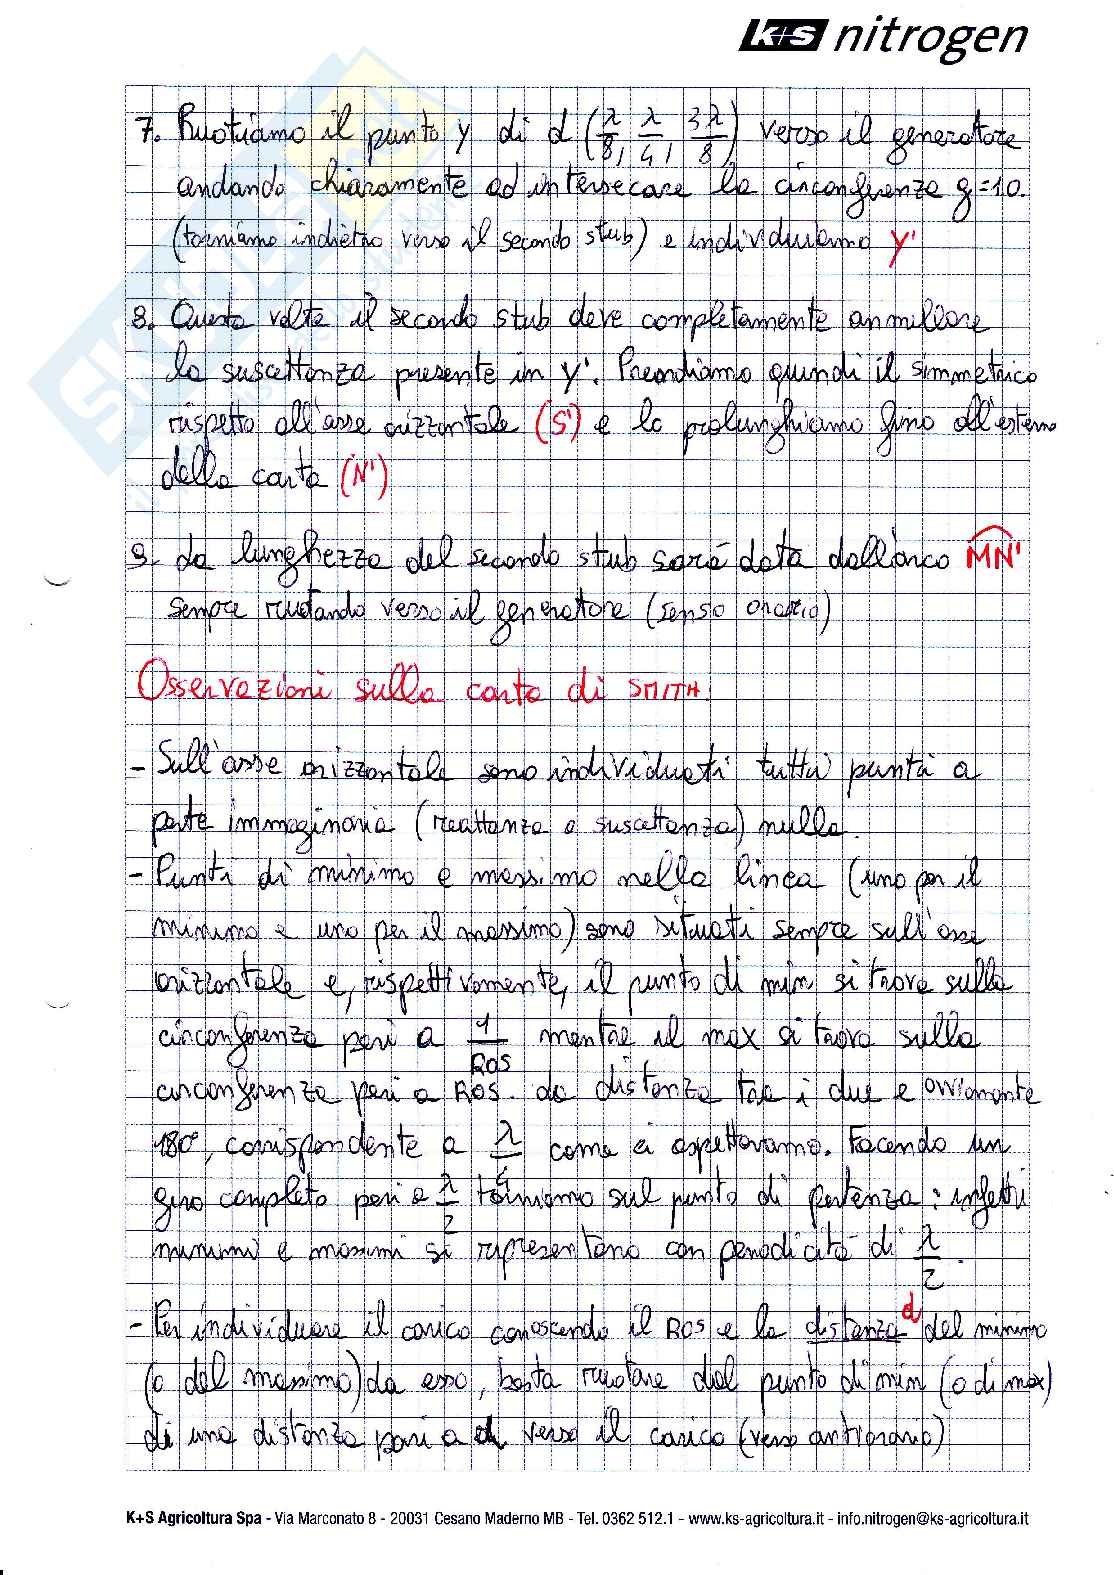 K+S nitrogen
7. Ruotiamo il punto y di d (λ/8, λ/4, 3λ/8) verso il generatore
andando chiaramente ad intersecare la circonferenza g=1.0.
(torniamo indietro verso il secondo stub) e individuiamo y'
8. Questa volta il secondo stub deve completamente annullare
la suscettanza presente in y'. Prendiamo quindi il simmetrico
rispetto all'asse orizzontale (S') e lo prolunghiamo fino all'esterno
della carta (N')
9. La lunghezza del secondo stub sarà data dall'arco MN'
sempre ruotando verso il generatore (senso orario)
Osservazioni sulla carta di SMITH.
- Sull'asse orizzontale sono individuati tutti punti a
parte immaginaria (reattanza o suscettanza) nulla.
- Punti di minimo e massimo nella linea (uno per il
minimo e uno per il massimo) sono situati sempre sull'asse
orizzontale e, rispettivamente, il punto di min si trova sulla
circonferenza pari a 1/ROS mentre il max si trova sulla
circonferenza pari a ROS. La distanza tra i due è ovviamente
180°, corrispondente a λ/4 come ci aspettavamo. Facendo un
giro completo pari a λ/2 torniamo sul punto di partenza: infatti
minimi e massimi si ripresentano con periodicità di λ/2.
- Per individuare il carico conoscendo il ROS e la distanza d del minimo
(o del massimo) da esso, basta ruotare dal punto di min (o di max)
di una distanza pari a d verso il carico (verso antiorario)
K+S Agricoltura Spa - Via Marconato 8 - 20031 Cesano Maderno MB - Tel. 0362 512.1 - www.ks-agricoltura.it - info.nitrogen@ks-agricoltura.it